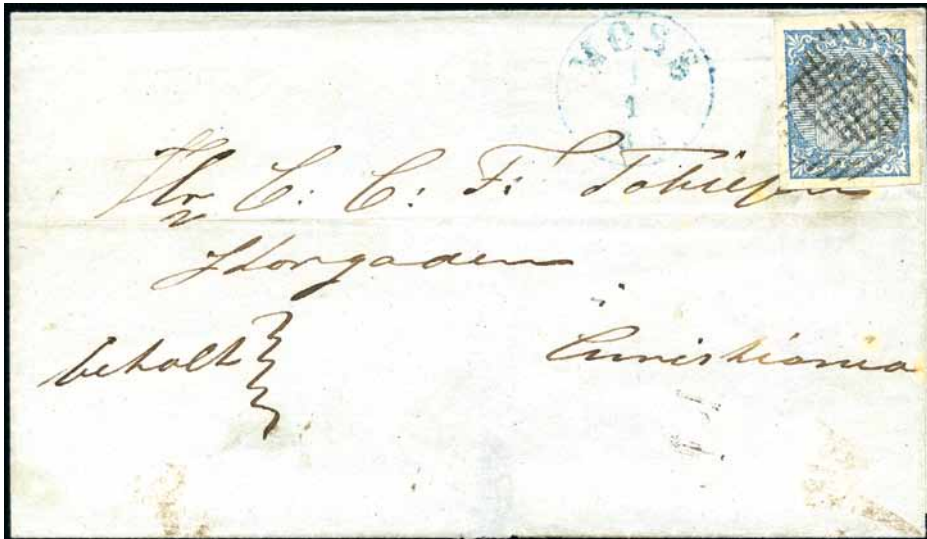 MOSS
1
Hr C: C: F: Tobiesen
Storgaden
betalt
Christiania